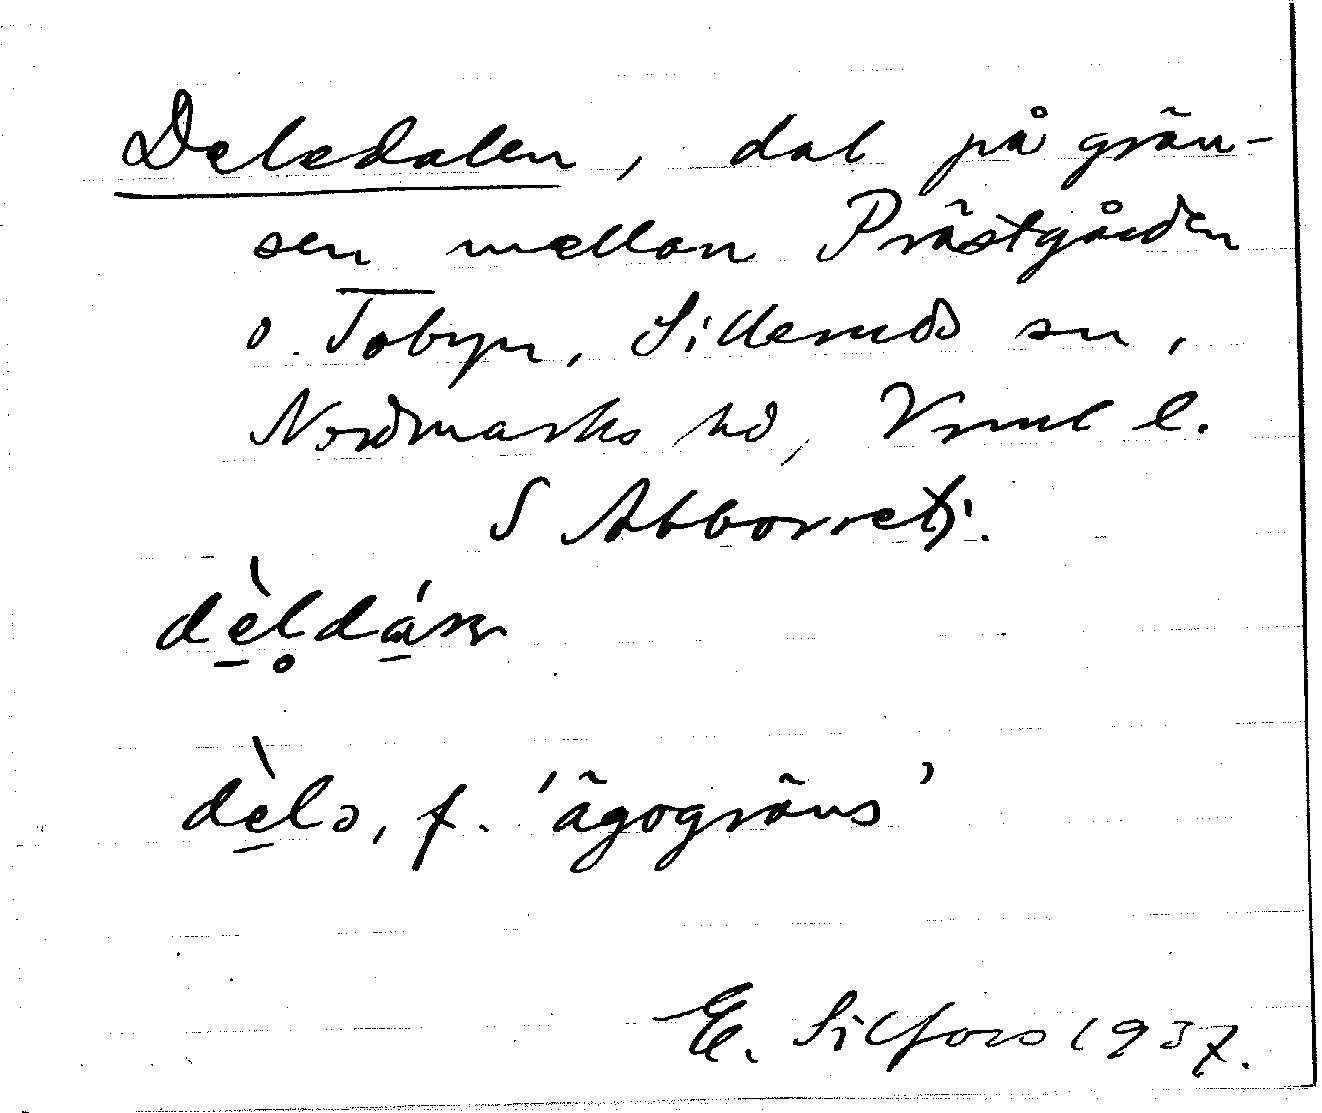 Deledalen, dal på grän-
sen mellan Prästgården
o. Tobyn, Silleruds sn,
Nordmarks hd, Vrml l.
S Abborretj.
dèl̥dán
dèlɔ, f. 'ägogräns'
E. Silfors 1937.